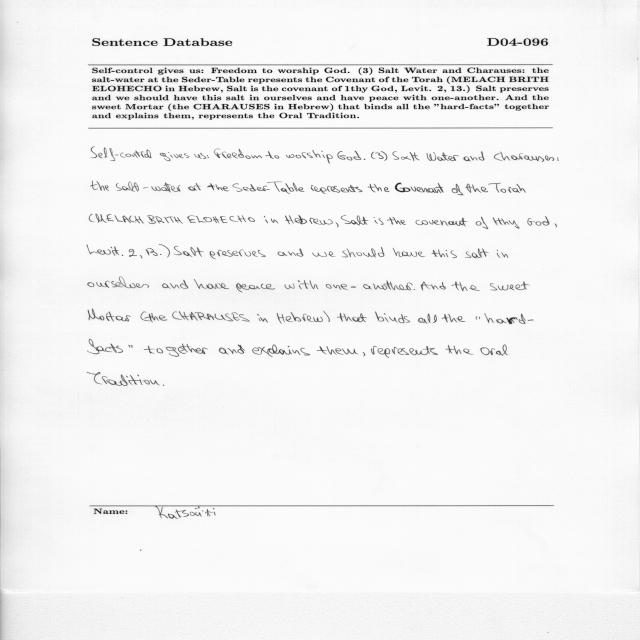 Sentence Database D04-096
Self-control gives us: Freedom to worship God. (3) Salt Water and Charauses: the
salt-water at the Seder-Table represents the Covenant of the Torah (MELACH BRITH
ELOHECHO in Hebrew, Salt is the covenant of 1thy God, Levit. 2, 13.) Salt preserves
and we should have this salt in ourselves and have peace with one-another. And the
sweet Mortar (the CHARAUSES in Hebrew) that binds all the "hard-facts" together
and explains them, represents the Oral Tradition.
Self-control gives us: Freedom to worship God. (3) Salt Water and Charauses:
the salt-water at the Seder-Table represents the Covenant of the Torah
(MELACH BRITH ELOHECHO in Hebrew, Salt is the covenant of 1thy God,
Levit. 2, 13.) Salt preserves and we should have this salt in
ourselves and have peace with one-another. And the sweet
Mortar (the CHARAUSES in Hebrew) that binds all the "hard-
facts" together and explains them, represents the Oral
Tradition.
Name: